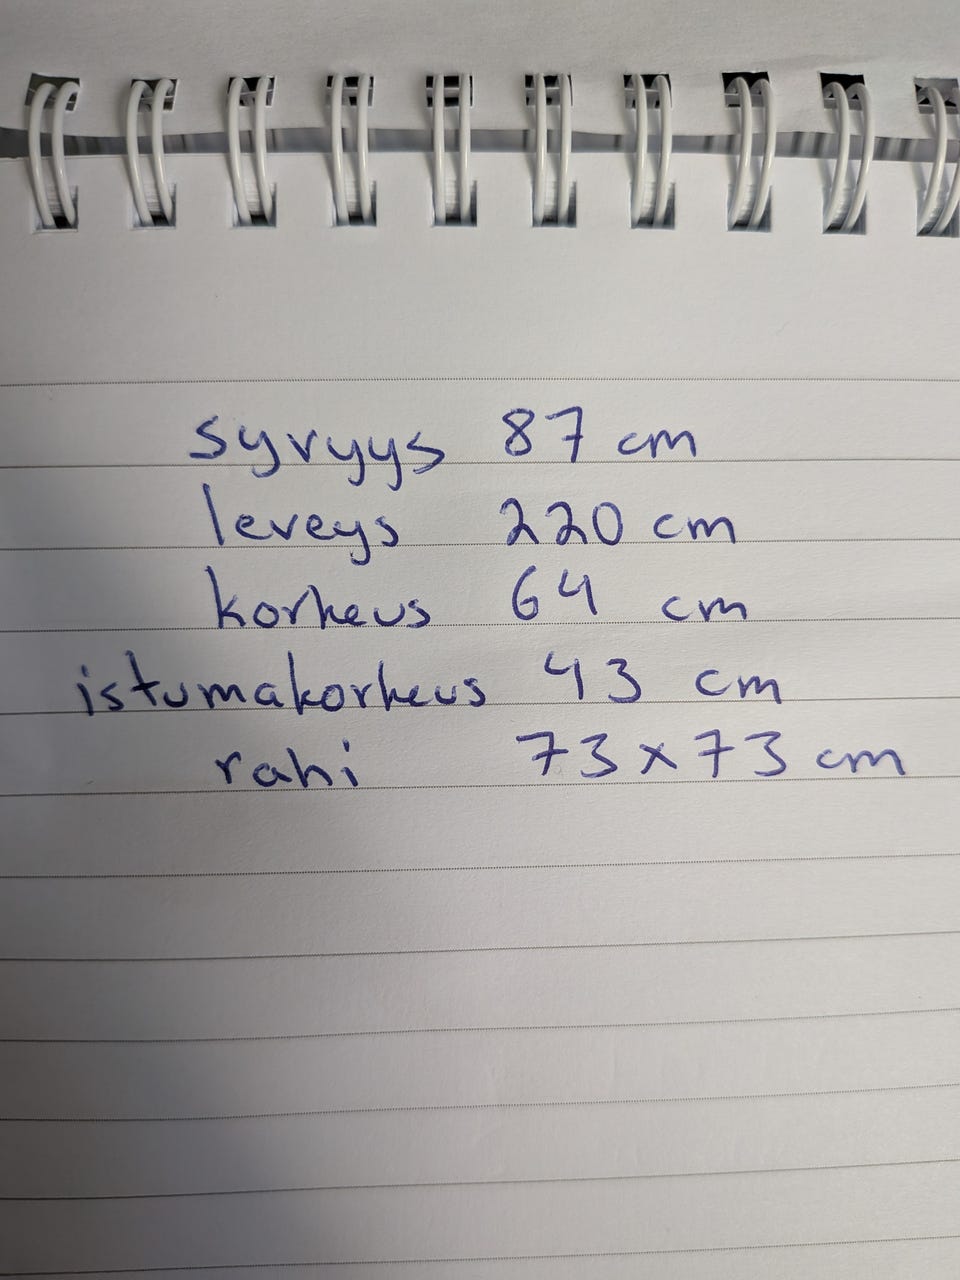 syvyys 87 cm
leveys 220 cm
korkeus 64 cm
istumakorkeus 43 cm
rahi 73 x 73 cm